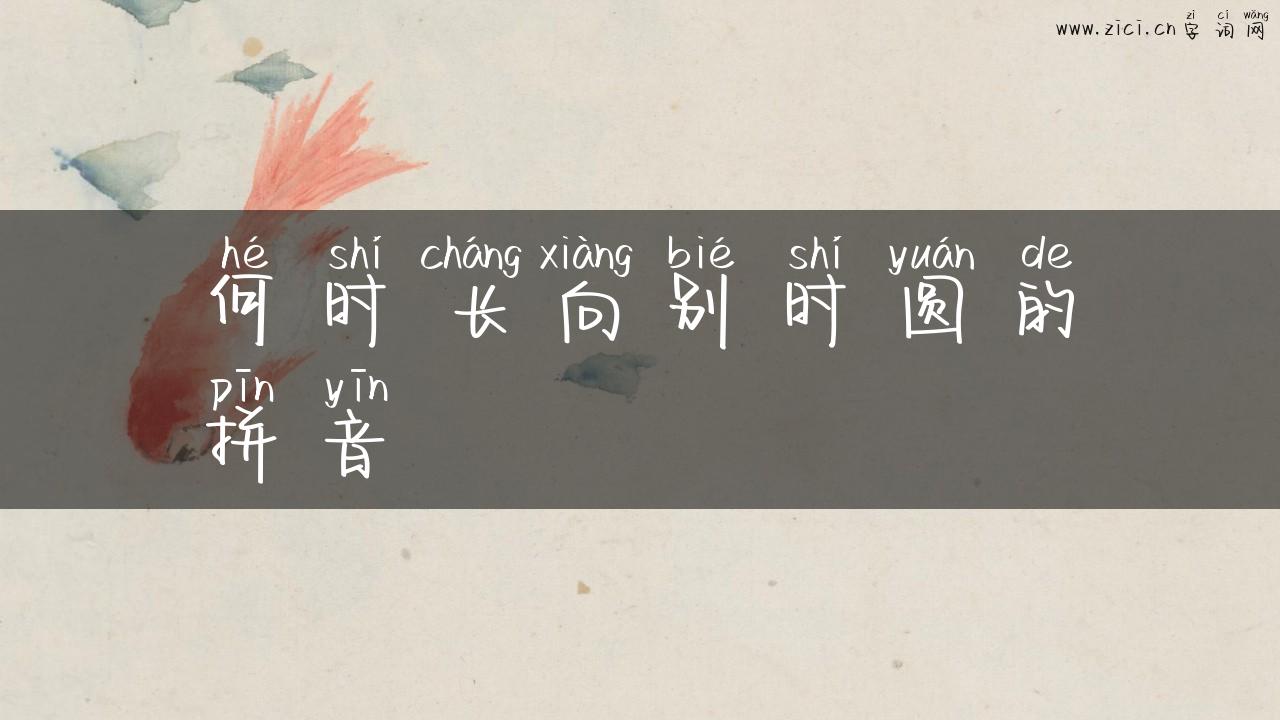 zì cí wǎng
www.zici.cn 字词网
hé shí cháng xiàng bié shí yuán de
何时长向别时圆的
pīn yīn
拼音